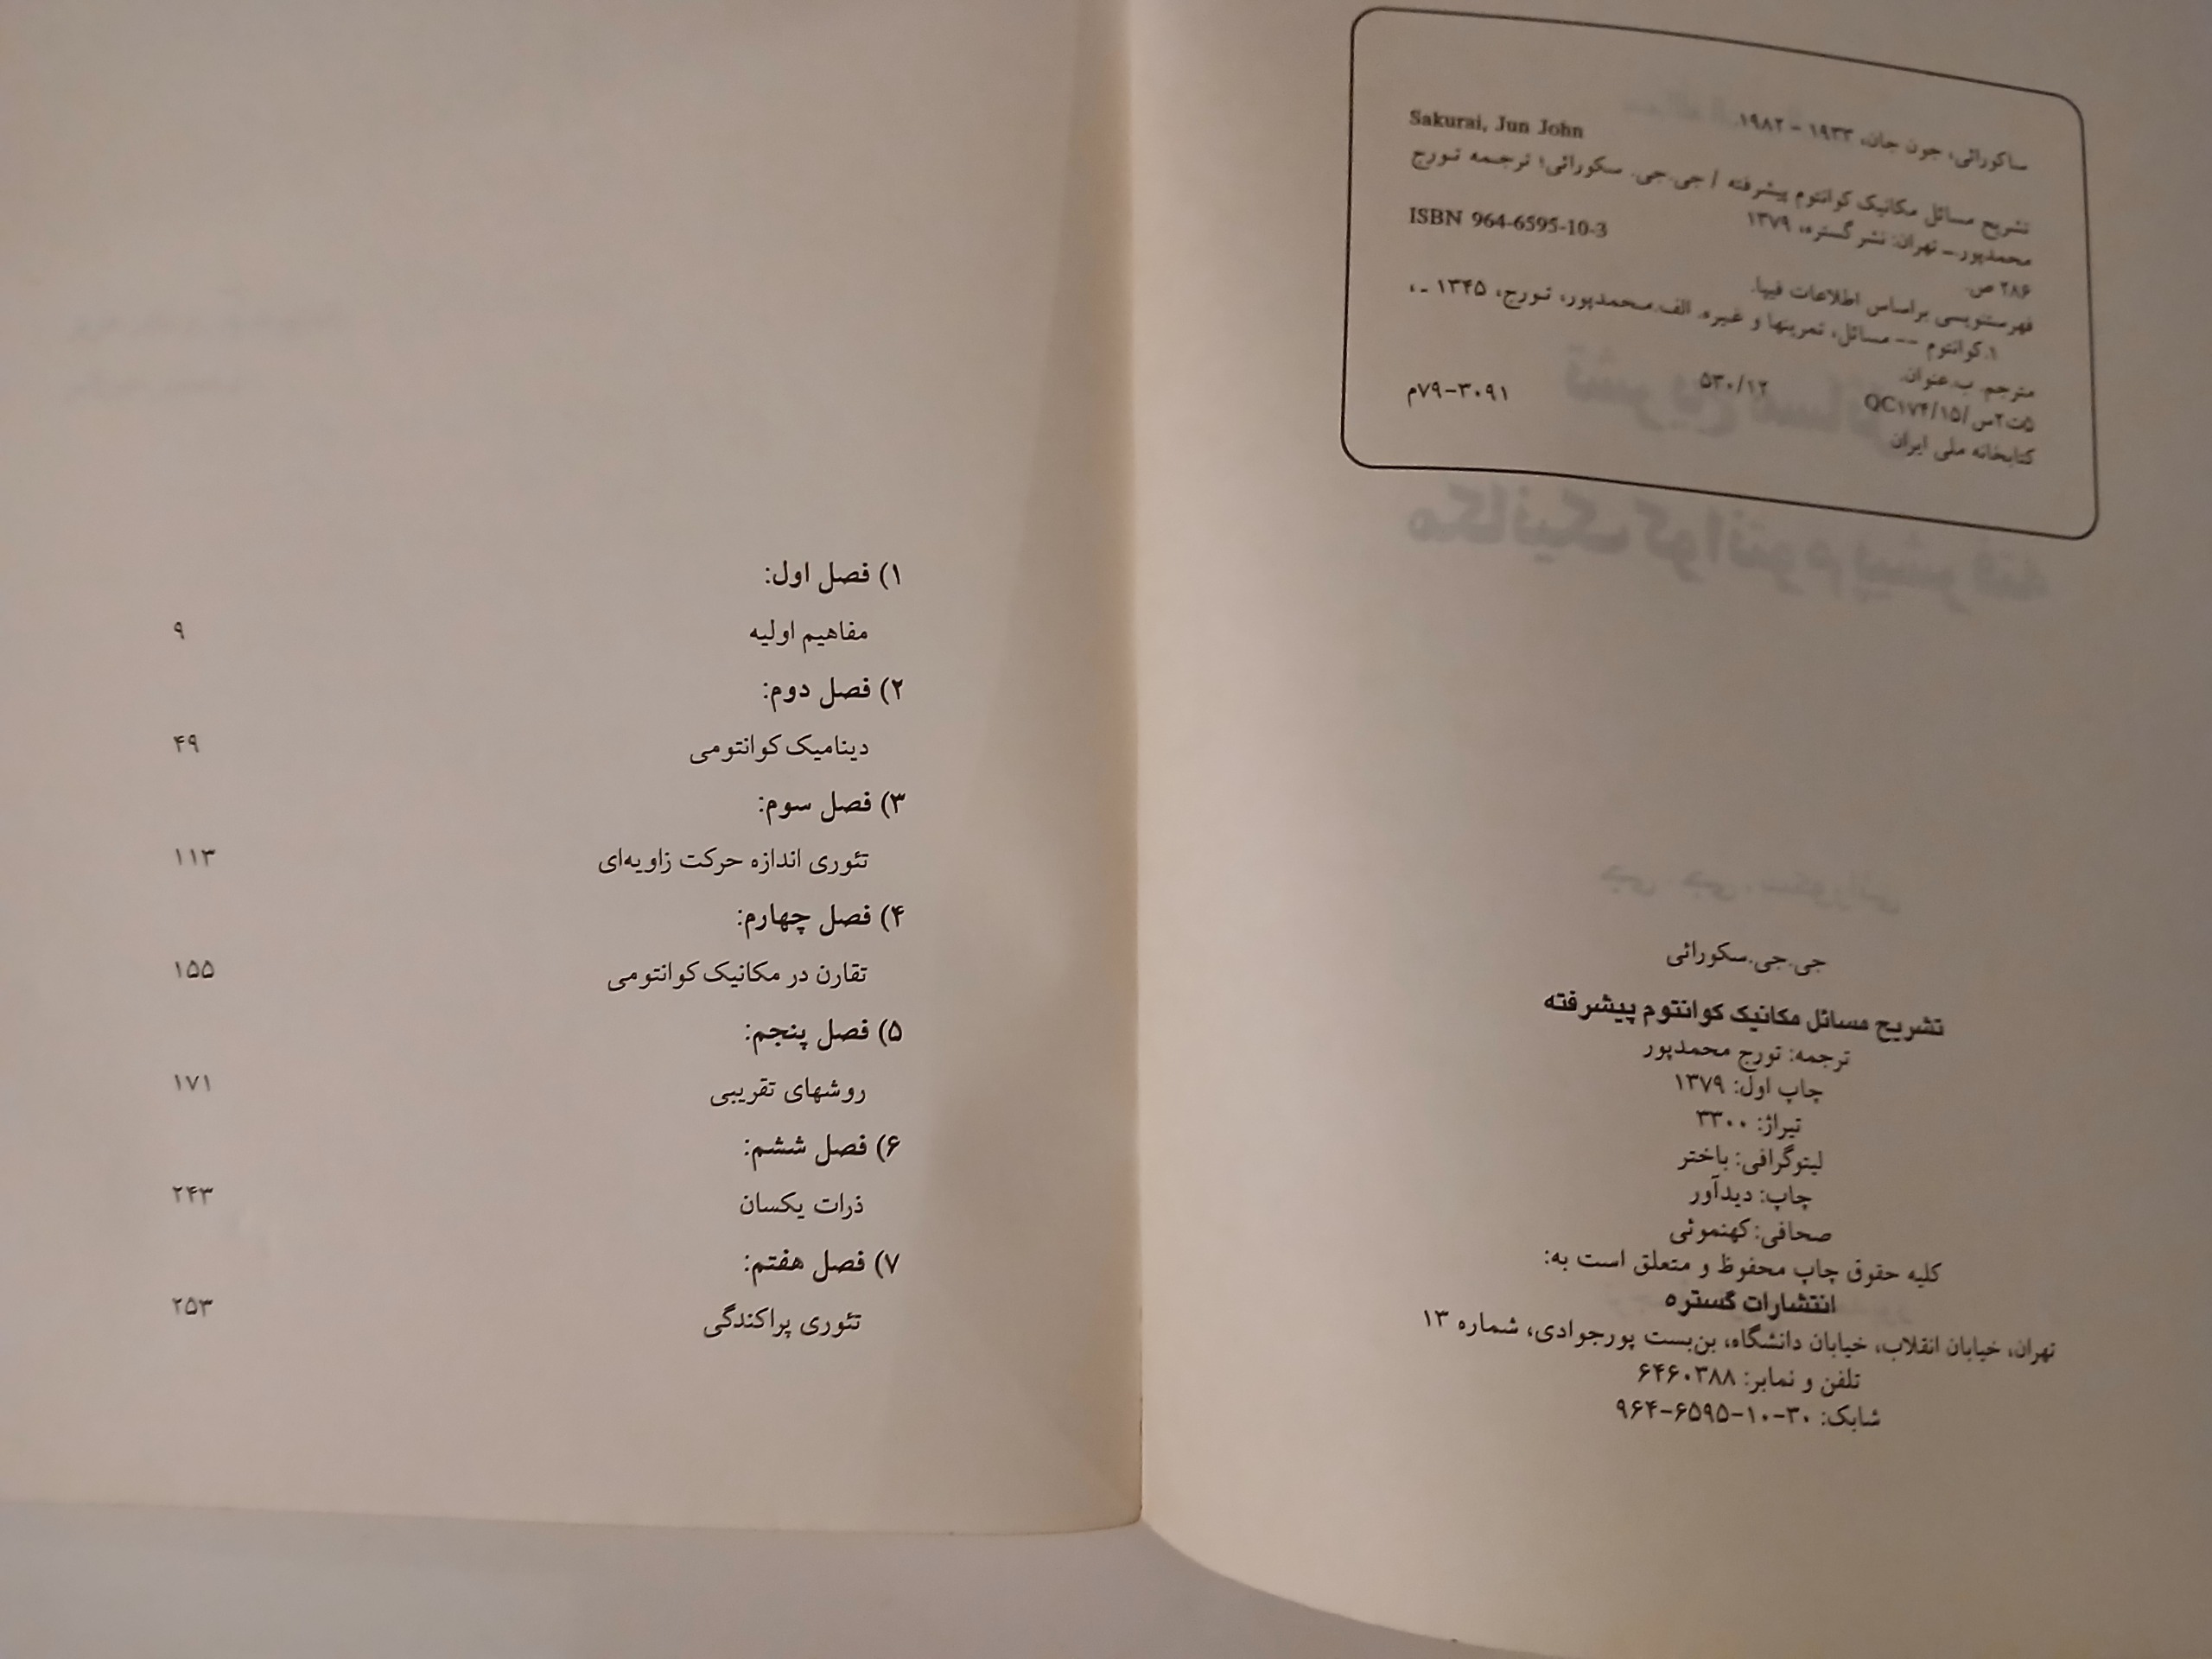 ساکورائی، جون جان، ۱۹۳۳ - ۱۹۸۲ Sakurai, Jun John
تشریح مسائل مکانیک کوانتوم پیشرفته / جی.جی. سکورائی؛ ترجمه تورج
محمدپور. ـ تهران: نشر گستره، ۱۳۷۹ ISBN 964-6595-10-3
۲۸۶ ص.
فهرستنویسی براساس اطلاعات فیپا.
۱.کوانتوم -- مسائل، تمرینها و غیره. الف.محمدپور، تورج، ۱۳۴۵ ـ ،
مترجم. ب.عنوان.
۵ت۲س/QC۱۷۴/۱۵ ۵۳۰/۱۲ ۷۹-۳۰۹۱م
کتابخانه ملی ایران
جی.جی.سکورائی
تشریح مسائل مکانیک کوانتوم پیشرفته
ترجمه: تورج محمدپور
چاپ اول: ۱۳۷۹
تیراژ: ۳۳۰۰
لیتوگرافی: باختر
چاپ: دیدآور
صحافی: کهنموئی
کلیه حقوق چاپ محفوظ و متعلق است به:
انتشارات گستره
تهران، خیابان انقلاب، خیابان دانشگاه، بن‌بست پورجوادی، شماره ۱۳
تلفن و نمابر: ۶۴۶۰۳۸۸
شابک: ۳۰-۱۰-۶۵۹۵-۹۶۴
۱) فصل اول:
مفاهیم اولیه ۹
۲) فصل دوم:
دینامیک کوانتومی ۴۹
۳) فصل سوم:
تئوری اندازه حرکت زاویه‌ای ۱۱۳
۴) فصل چهارم:
تقارن در مکانیک کوانتومی ۱۵۵
۵) فصل پنجم:
روشهای تقریبی ۱۷۱
۶) فصل ششم:
ذرات یکسان ۲۴۳
۷) فصل هفتم:
تئوری پراکندگی ۲۵۳